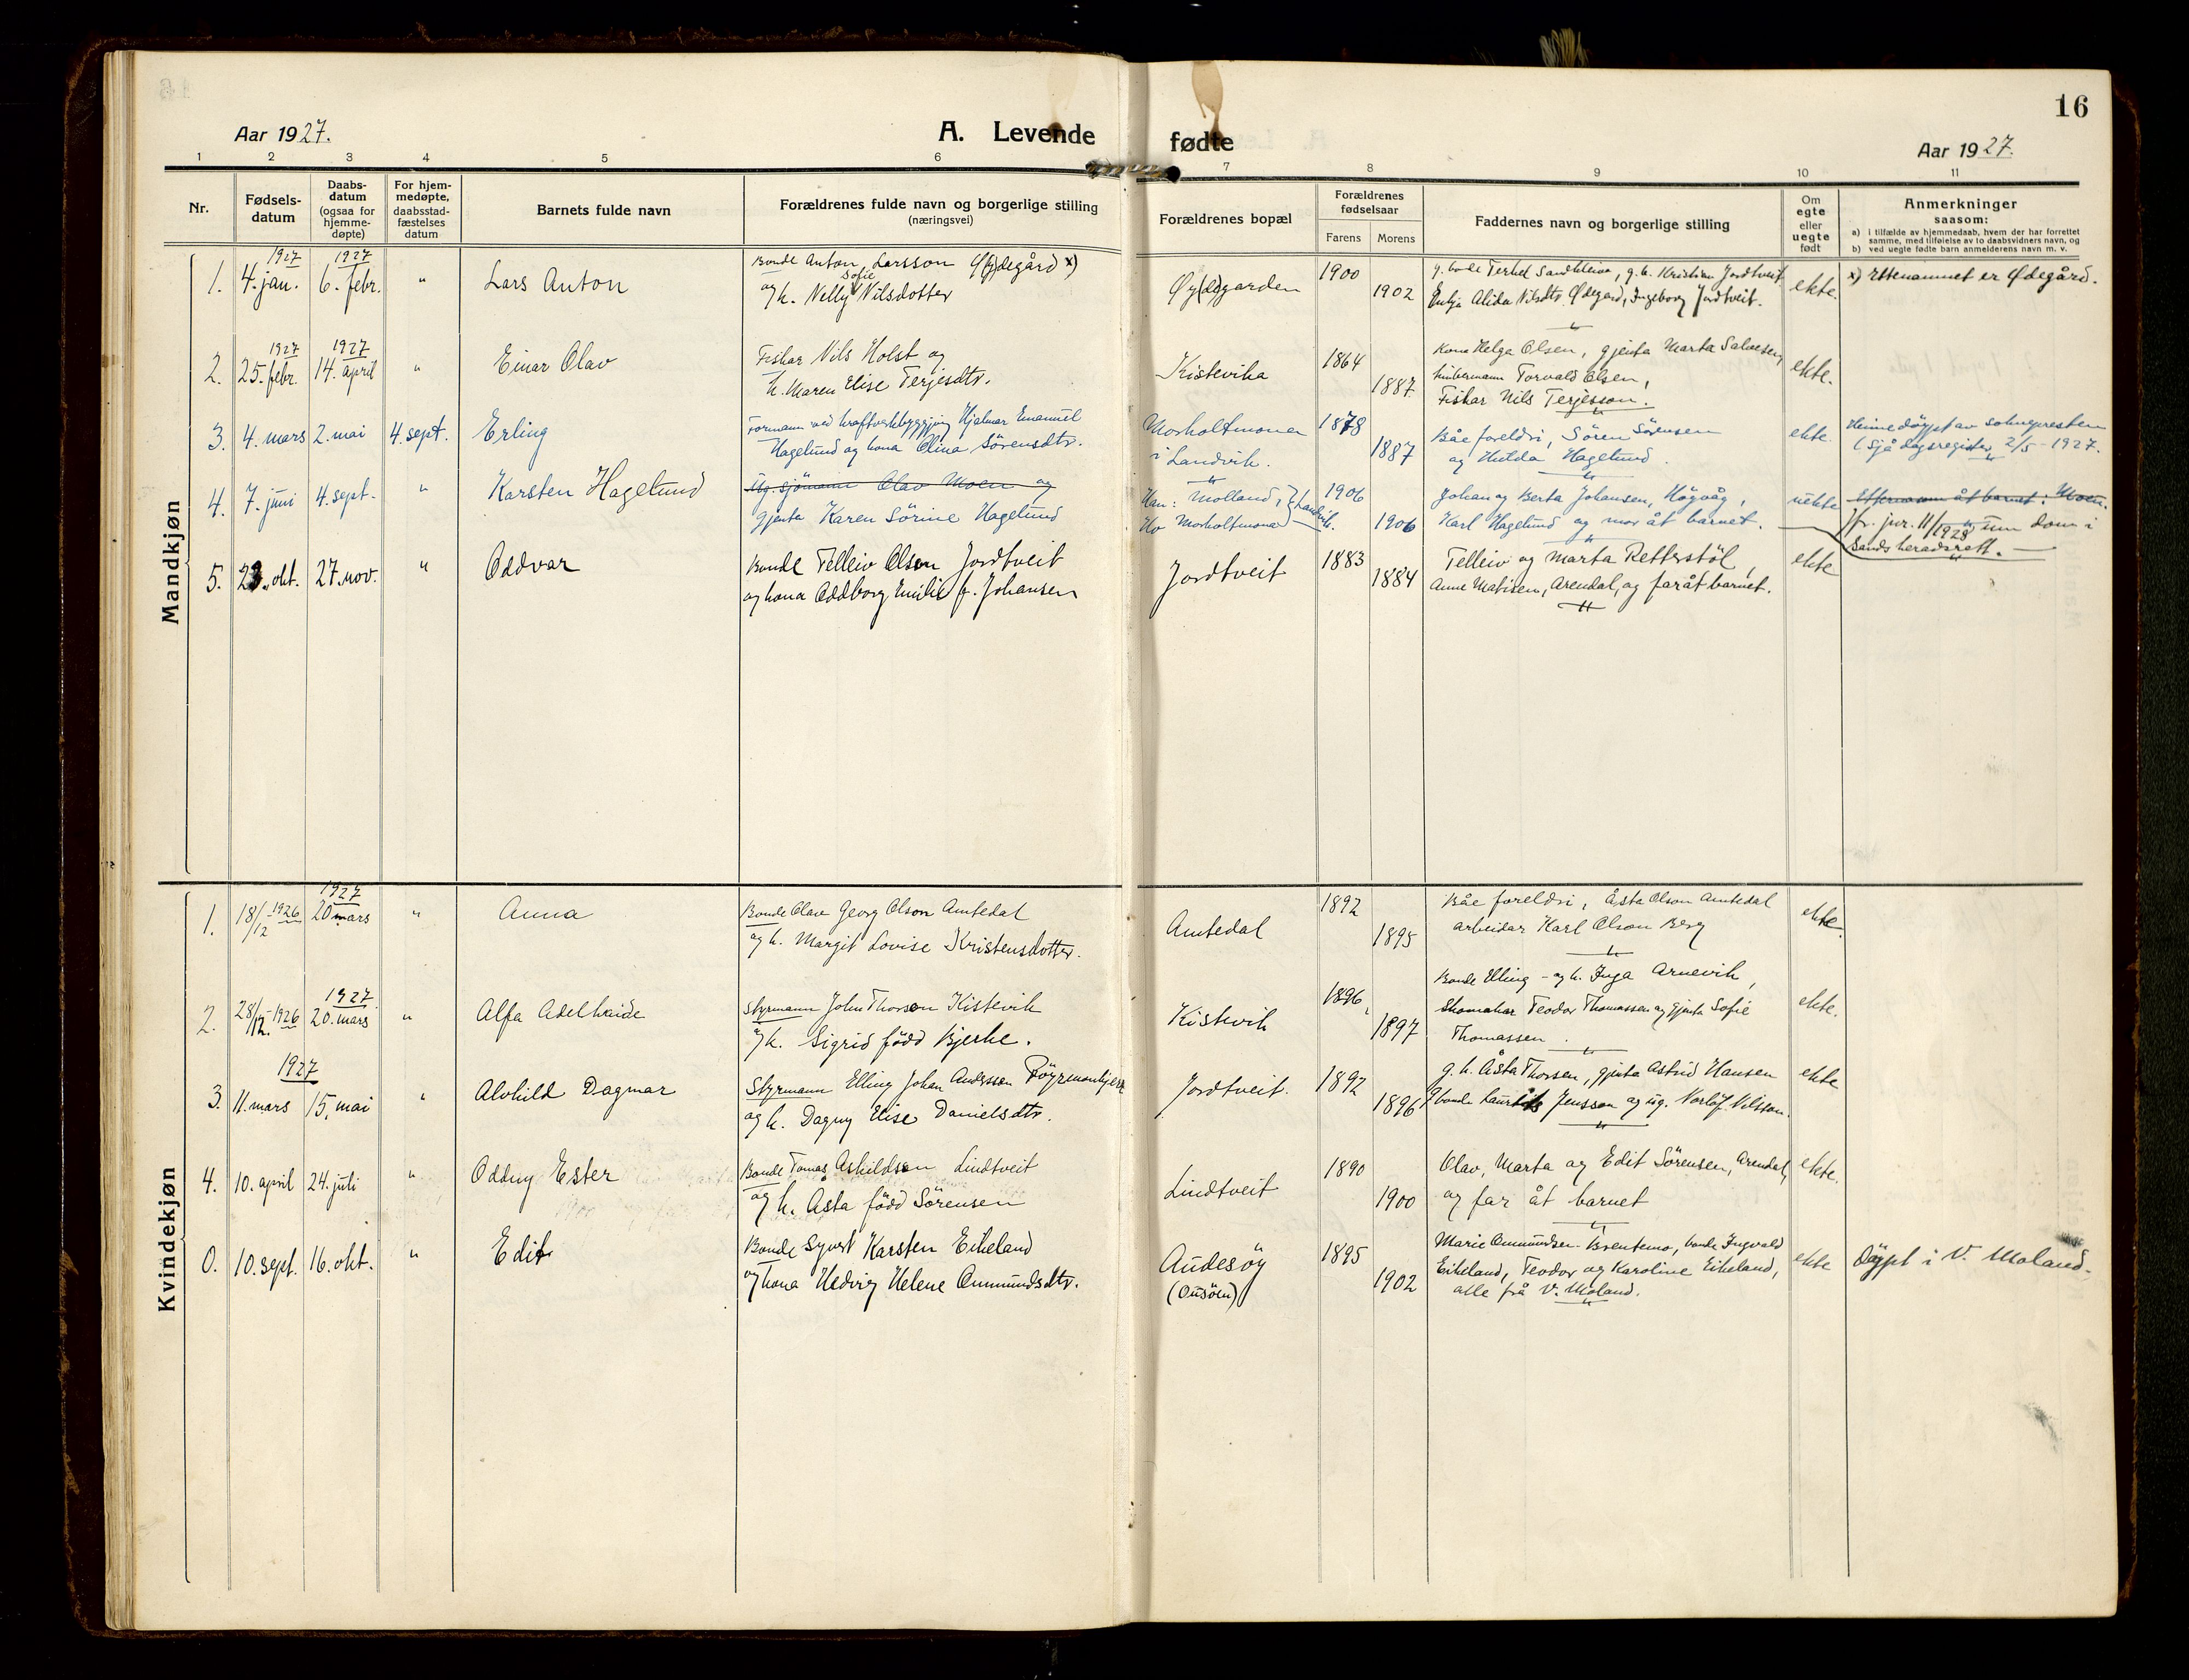 16
Aar 1927.
A. Levende
fødte
Aar 1927.
1 2 3 4 5 6 7 8 9 10 11
Nr.
Fødsels-
datum
Daabs-
datum
(ogsaa for
hjemme-
døpte)
For hjem-
medøpte,
daabsstad-
fæstelses
datum
Barnets fulde navn
Forældrenes fulde navn og borgerlige stilling
(næringsvei)
Forældrenes bopæl
Forældrenes
fødselsaar
Farens Morens
Faddernes navn og borgerlige stilling
Om
egte
eller
uegte
født
Anmerkninger
saasom:
a) i tilfælde av hjemmedaab, hvem der har forrettet
samme, med tilføielse av to daabsvidners navn, og
b) ved uegte fødte barn anmelderens navn m. v.
Mandkjøn
1927 1927
1. 4. jan. 6. febr. " Lars Anton
Bonde Anton Larsson Ø(y)degård x)
og k. Nelly Sofie Nilsdotter
Øy(de)garden
1900
1902
g. bonde Terkel Sandkleiva, g. k. Kristine Jordtveit
Enkja Alida Nilsdtr. Ødegard, Ingeborg Jordtveit.
"
ekte.
x) Ettenamnet er Ødegård.
1927 1927
2. 25. febr. 14. april " Einar Olav
Fiskar Nils Holst og
k. Maren Elise Terjesdtr.
Kistevika
1864
1887
Kona Helga Olsen, gjenta Marta Salvesen,
Torvald Olsen,
Fiskar Nils Terjesson.
"
ekte.
3. 4. mars 2. mai 4. sept. Erling
Formann ved kraftverkbyggjing Hjalmar Emanuel
Hagelund og kona Olina Sörensdtr.
Morholtmonen
i Landvik.
"
1878
1887
Båe foreldri, Sören Sörensen
og Hulda Hagelund.
"
ekte.
Heimedöypt av soknepresten
(Sjå dagsregister 2/5 - 1927.
"
4. 7. juni 4. sept. " Karsten Hagelund
Ug. sjömann Olav Moen og
gjenta Karen Sörine Hagelund
Han: Molland, } Landvik.
Ho Morholtmona
1906
1906
Johan og Berta Johansen, Högvåg,
Karl Hagelund og mor åt barnet.
"
uekte
Etternamn åt barnet: Moen.
Jfr. jur. 11/1928 um dom i
Sands heradsrett.
"
5. 23. okt. 27. nov. " Oddvar
Bonde Telleiv Olsen Jordtveit
og kona Oddborg Emilie f. Johansen
Jordtveit
1883
1884
Telleiv og Marta Retterstöl,
Anne Matisen, Arendal, og far åt barnet.
"
ekte
Kvindekjøn
1927
1. 18/12 1926 20 mars " Anna
Bonde Olav Georg Olson Amtedal
og k. Margit Lovise Kristensdotter.
Amtedal
1892
1895
Båe foreldri, Åsta Olson Amtedal
arbeidar Karl Olson Berg
"
ekte.
1927
2. 28/12. 1926 20. mars " Alfa Adelheide
Styrmann John Thorson Kistevik
og k. Sigrid född Bjerke.
Kistevik
1896
1897
Bonde Elling - og k. Inga Arnevik,
Skomakar Teodor Thomassen og gjenta Sofie
Thomassen.
"
ekte.
1927
3. 11. mars 15. mai " Alvhild Dagmar
Styrmann Elling Johan Anderssen
og k. Dagny Elise Danielsdtr.
Jordtveit.
1892
1896
g. k. Åsta Thorsen, gjenta Astrid Hansen
bonde Laurits Jensson og ug. Nilsson.
"
ekte
4. 10. april 24. juli " Oddny Ester
Bonde Tomas Askildsen Lindtveit
og k. Åsta född Sörensen
Lindtveit
1890
1900
Olav, Marta og Edit Sörensen, Arendal,
og far åt barnet
"
ekte.
0. 10. sept. 16. okt. " Edit
Bonde Syvert Karsten Eikeland
og kona Hedvig Helene Ommundsdtr.
Audesöy
(Ousöen)
1895
1902
Marie Ommundsen bonde Ingvald
Eikeland, Teodor og Karoline Eikeland,
alle frå V. Moland.
"
ekte
Döypt i V. Moland.